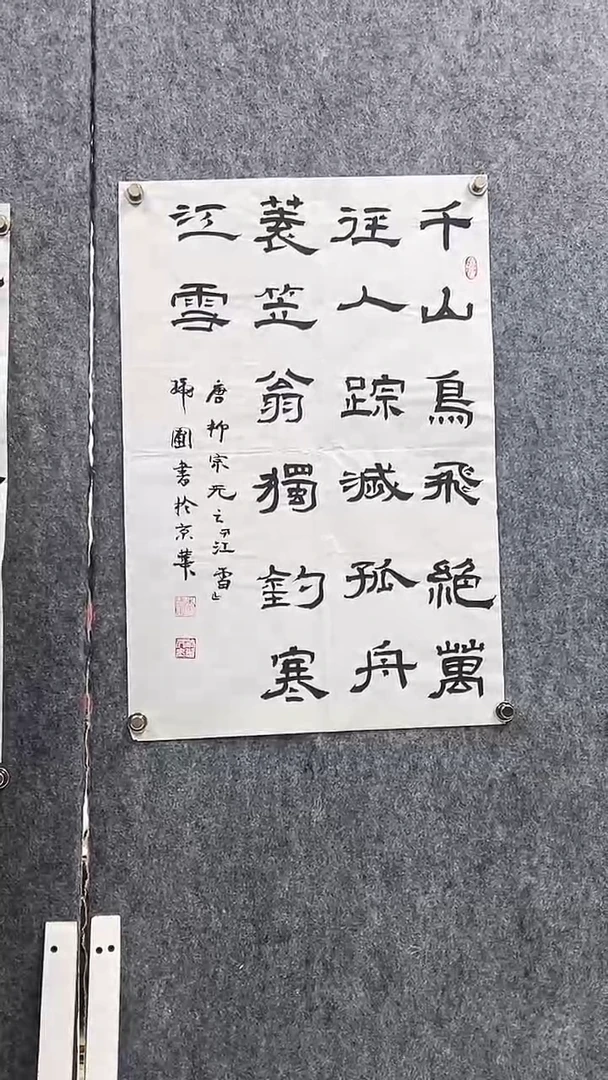 千山鳥飛絶萬
徑人踪滅孤舟
蓑笠翁獨釣寒
江雪
唐柳宗元之「江雪」
書於京華